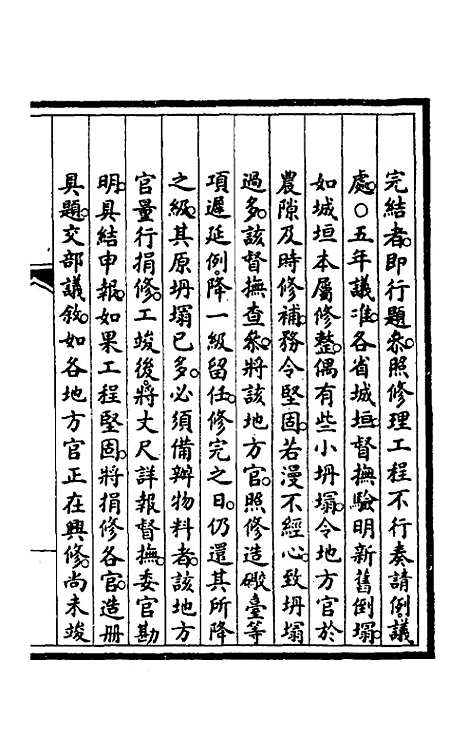 完結者。即行題參。照修理工程不行奏請例議
處。○五年議准。各省城垣。督撫驗明新舊倒塌。
如城垣本屬修整。偶有些小坍塌。令地方官於
農隙及時修補。務令堅固。若漫不經心。致坍塌
過多。該督撫查參。將該地方官。照修造礮臺等
項遲延例。降一級留任。修完之日。仍還其所降
之級。其原坍塌已多。必須備辦物料者。該地方
官量行捐修。工竣後。將丈尺詳報督撫。委官勘
明。具結申報。如果工程堅固。將捐修各官。造冊
具題。交部議敘。如各地方官正在興修。尚未竣